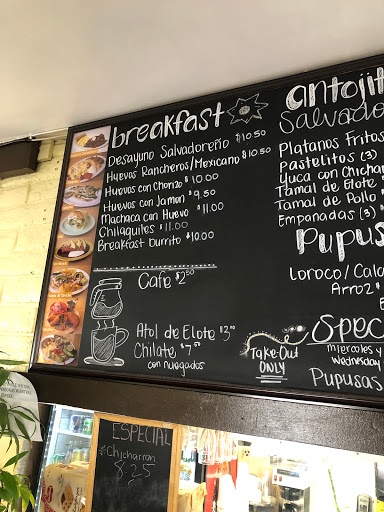 breakfast
Desayuno Salvadoreño $10.50
Huevos Rancheros/Mexicano $10.50
Huevos con Chorizo $10.00
Huevos con Jamon $9.50
Machaca con Huevo $11.00
Chilaquiles $11.00
Breakfast Burrito $10.00
Cafe $2.50
Atol de Elote $3
Chilate $7.50
con nuegados
antojit
Salvado
Platanos Fritos
Pastelitos (3)
Yuca con Chichar
Tamal de Elote
Tamal de Pollo
Empanadas (3)
Pupus
Loroco/Cala
Arroz
Spec
Take-Out
ONLY
Miercoles y
Wednesday
Pupusas
ESPECIAL
#Chicharron
8.25